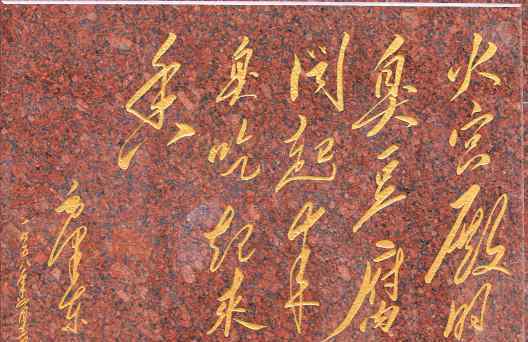 火宫殿的
臭豆腐
闻起来
臭吃起来
香
毛泽东